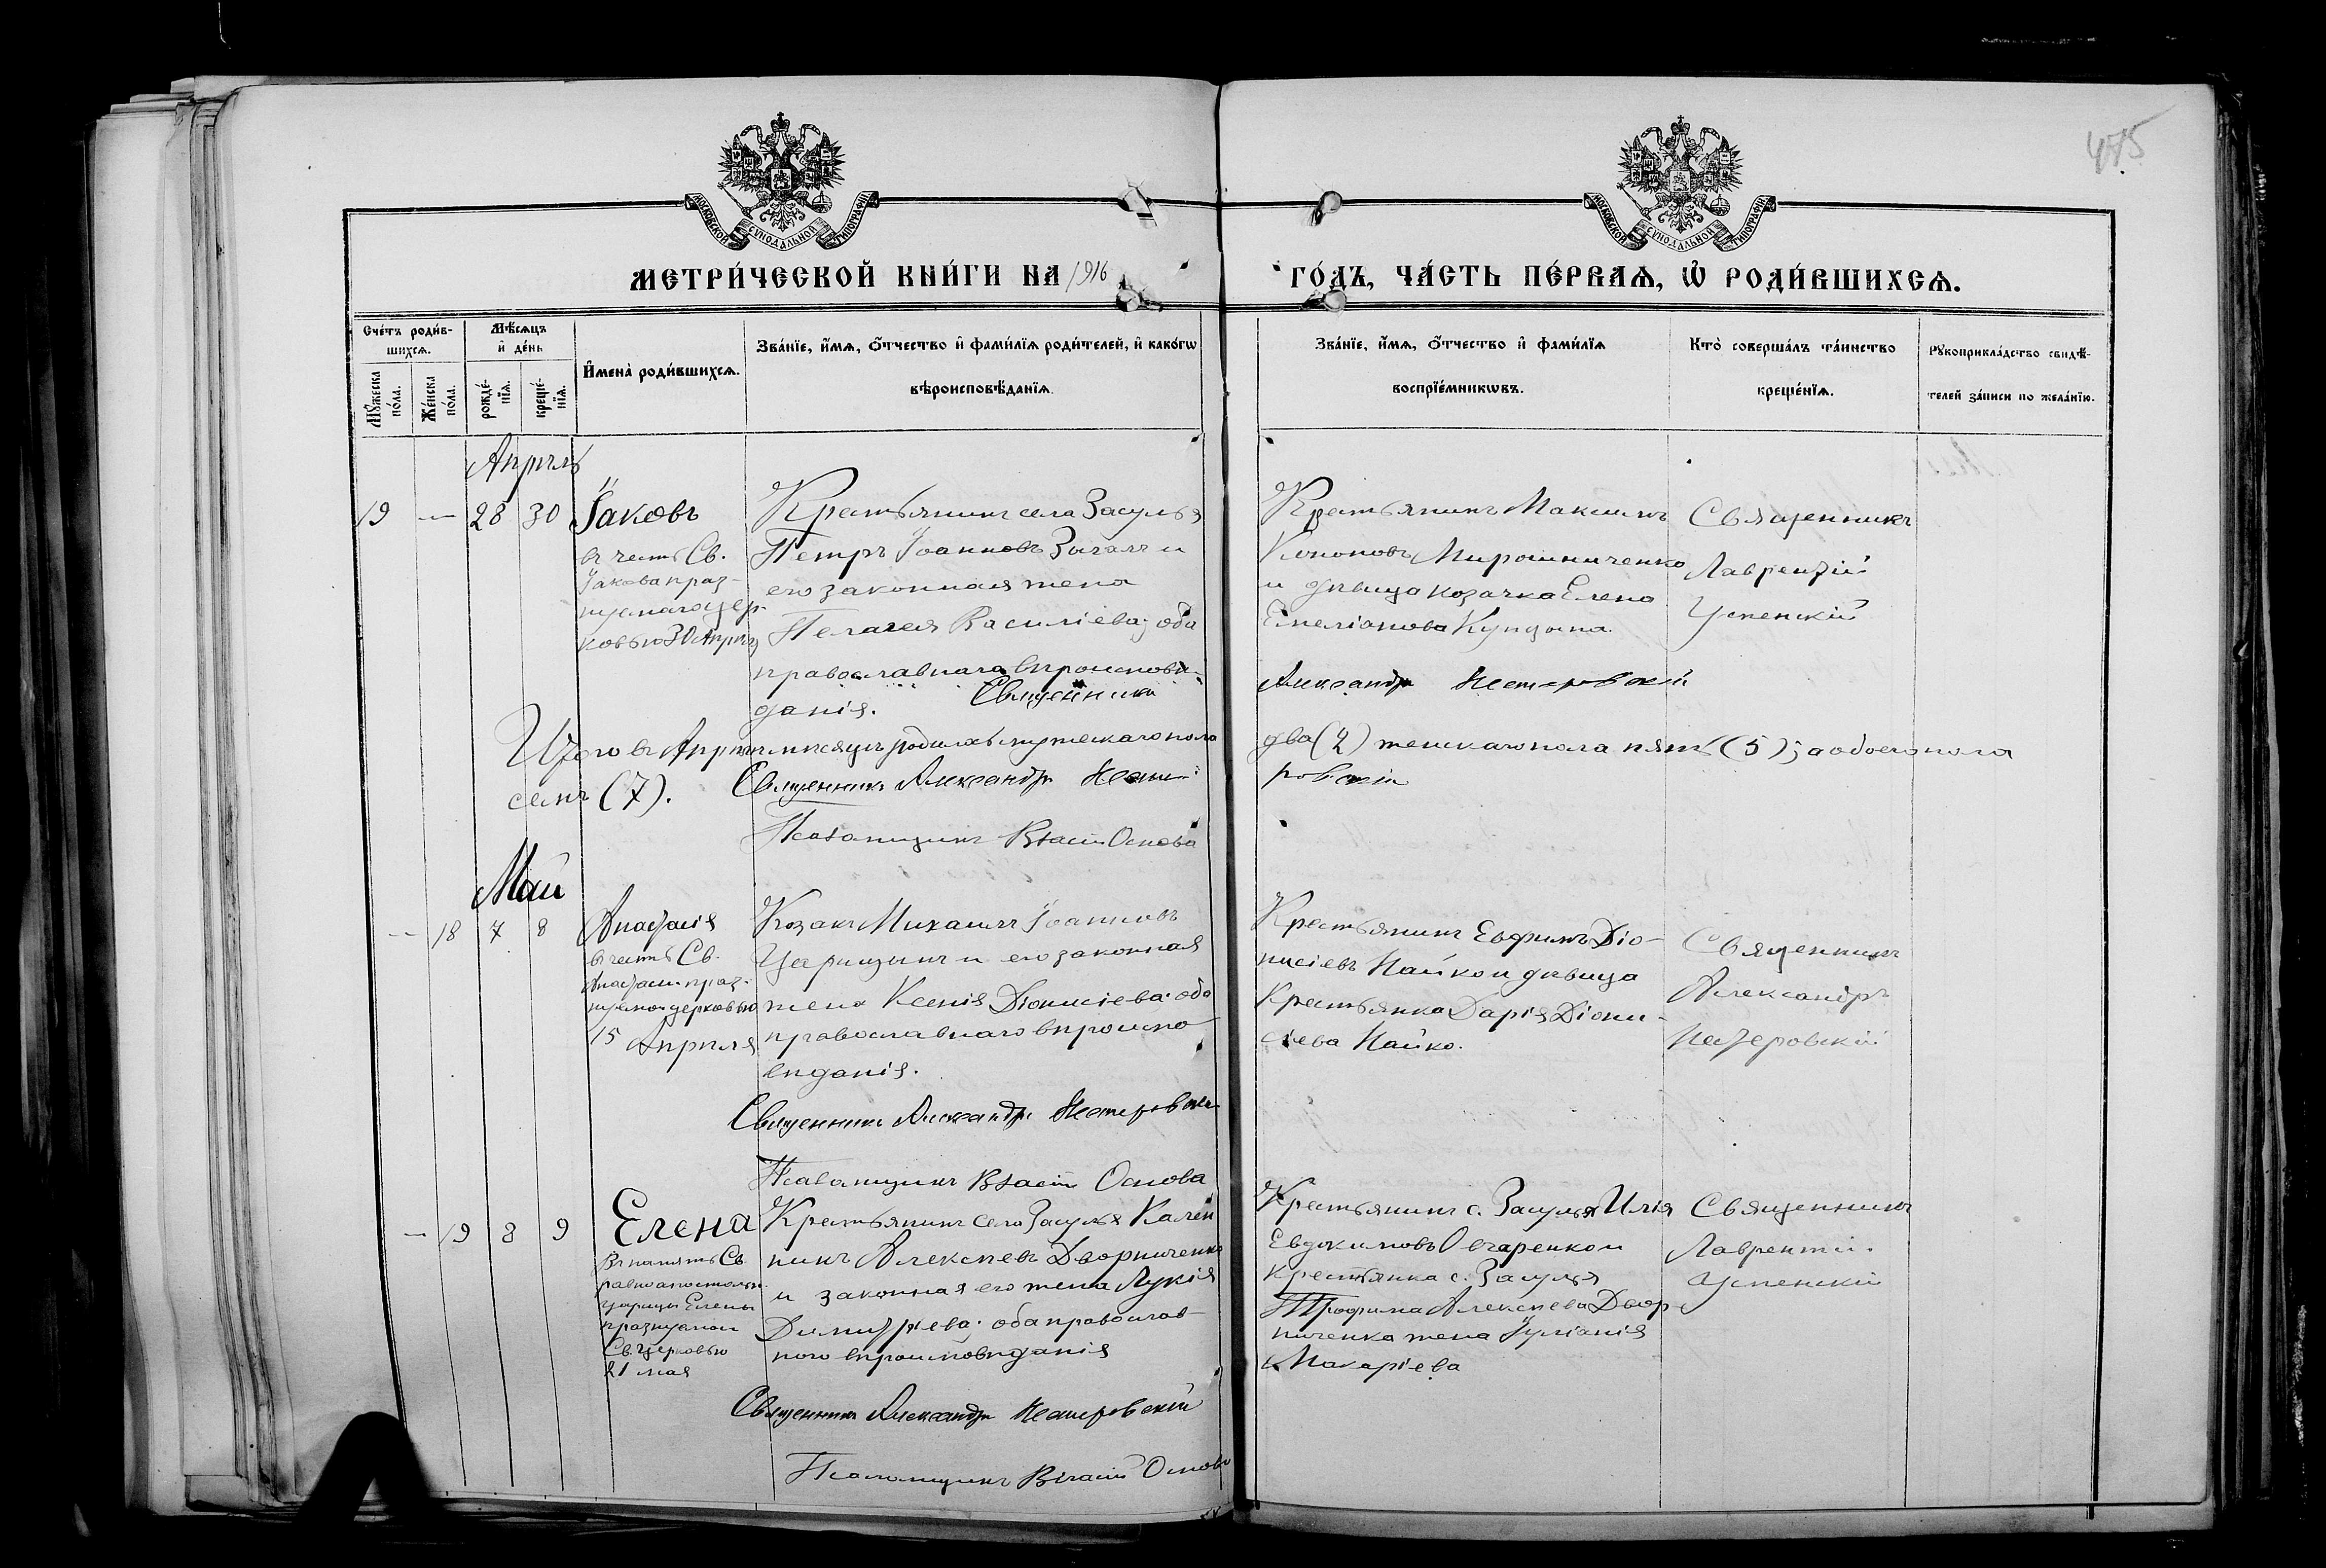 475
МОСКОВСКОЙ СѴНОДАЛЬНОЙ ТИПОГРАФІИ
МОСКОВСКОЙ СѴНОДАЛЬНОЙ ТИПОГРАФІИ
МЕТРИ́ЧЕСКОЙ КНИ́ГИ НА 1916
ГО́ДЪ, ЧА́СТЬ ПЕ́РВАѦ, Ѡ҆ РОДИ́ВШИХСѦ.
Сче́тъ роди́в-
шихсѧ.
Мѣ́сѧцъ
и҆ де́нь
Мꙋ́жеска по́ла.
Же́нска по́ла.
рожде́-
нїѧ.
креще́-
нїѧ.
И҆мена̀ роди́вшихсѧ.
Зва́нїе, и҆́мѧ, ѻ҆́тчество и҆ фами́лїѧ роди́телей, и҆ како́гѡ
вѣроисповѣ́данїѧ.
Зва́нїе, и҆́мѧ, ѻ҆́тчество и҆ фами́лїѧ
воспрїе́мникѡвъ.
Кто̀ соверша́лъ та́инство
креще́нїѧ.
Рꙋкоприкла́дство свидѣ́-
телей за́писи по жела́нїю.
Апрѣль
19 — 28 30 Іаковъ
въ честь Св.
Іакова праз-
нуемаго цер-
ковью 30 Апрѣля
Крестьянинъ села Засулья
Петръ Іоанновъ и
его законная жена
Пелагея Василіева; оба
православнаго вѣроисповѣ-
данія. Священникъ
Крестьянинъ Максимъ
Кононовъ Мирошниченко
и дѣвица козачка Елена
Емеліанова
Александръ Нестеровскій
Священникъ
Лаврентій
Успенскій
Итого въ Апрѣлѣ мѣсяцѣ родилось мужескаго пола
два (2) женскаго пола пять (5); а обоего пола
семь (7). Священникъ Александръ Несте-
ровскій
Псаломщикъ Власій
Май
— 18 7 8 Анастасія
въ честь Св.
Анастасіи праз-
нуемой церковью
15 Апрѣля
Козакъ Михаилъ Іоанновъ
Царицынъ и его законная
жена Ксенія Діонисіева; оба
православнаго вѣроиспо
вѣданія.
Священникъ Александръ Нестеровскій
Псаломщикъ Власій
Крестьянинъ Евфимъ Діо-
нисіевъ и дѣвица
крестьянка Дарія Діони-
сіева
Священникъ
Александръ
Нестеровскій
— 19 8 9 Елена
Въ память Св.
равноапостольн.
царицы Елены
празнуемой
Св. Церковью
21 мая
Крестьянинъ села Засулья Кален
никъ Алексѣевъ Дворниченко
и законная его жена Лукія
Димитріева; оба православ-
ного вѣроисповѣданія
Священникъ Александръ Нестеровскій
Псаломщикъ Власій
Крестьянинъ с. Засулья Илія
Евдокимовъ Овчаренко и
крестьянка с. Засулья
Трофима Алексѣева Двор
ниченка жена Іуліанія
Макаріева
Священникъ
Лаврентій
Успенскій